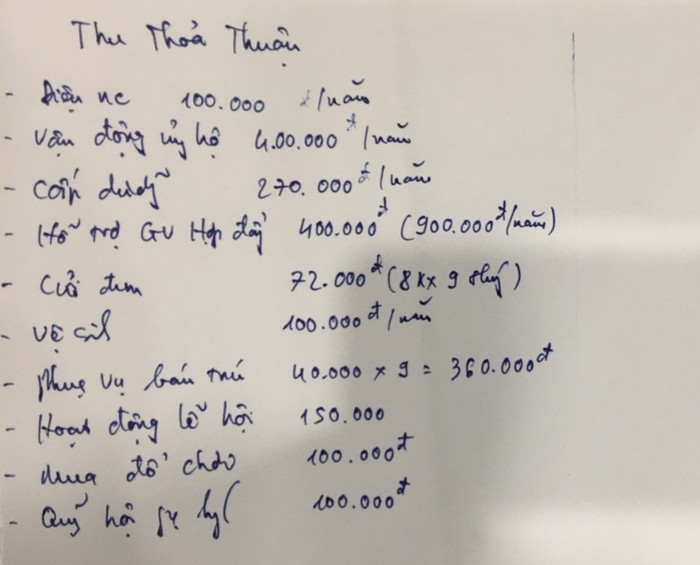 Thu Thoả Thuận
- Điện nc 100.000 đ/năm
- Vận động ủng hộ 400.000đ/năm
- Cấp dưỡng 270.000đ/năm
- Hỗ trợ GV Hợp đồng 400.000đ (900.000đ/năm)
- Củi đun 72.000đ (8k x 9 thg)
- Vệ sinh 100.000đ/năm
- Phục vụ bán trú 40.000 x 9 = 360.000đ
- Hoạt động lễ hội 150.000
- Mua đồ chơi 100.000đ
- Quỹ hội 100.000đ